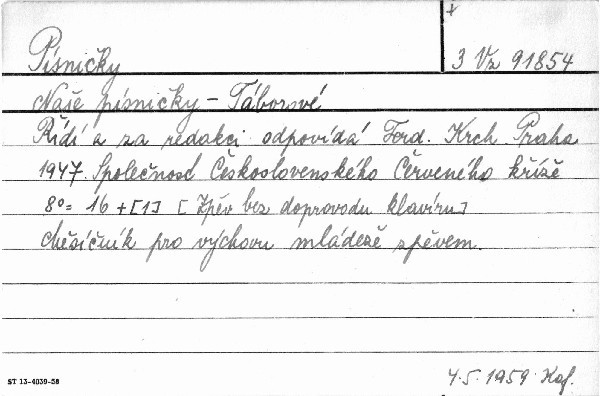 +
Písničky
3 Vz 91854
Naše písničky - Táborové
Řídí a za redakci odpovídá Ferd. Krch. Praha
1947. Společnosť Československého Červeného kříže
8º= 16 + [1] [Zpěv bez doprovodu klavíru]
Měsíčník pro výchovu mládeže zpěvem.
ST 13-4039-58
4.5.1959. Kaf.